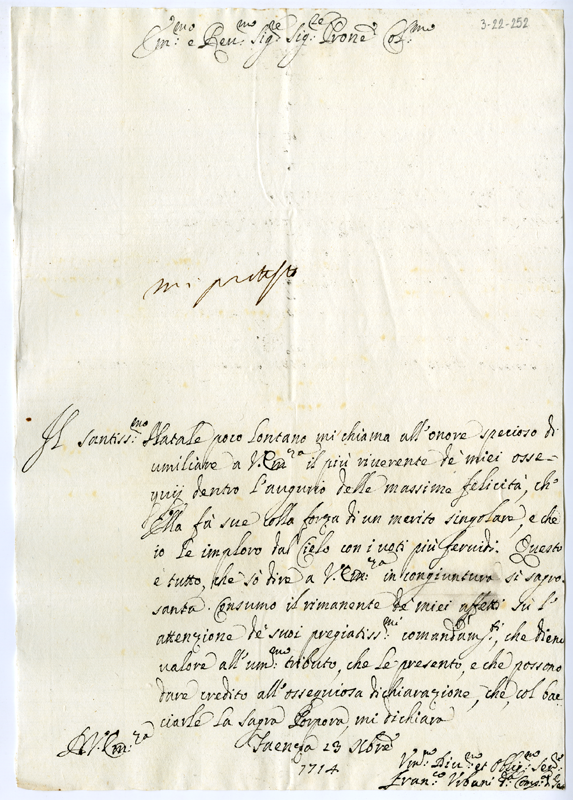 3-22-252
Em:mo e Reu:mo Sig:re Sig:re Prone Col:mo
mi protesto
Il santiss:mo Natale poco lontano mi chiama all'onore specioso di
umiliare a V. Em:za il più riuerente de' miei osse-
quij dentro l'augurio delle massime felicità, ch'
Ella fà sue colla forza di un merito singolare, e che
io Le imploro dal Cielo con i uoti più feruidi. Questo
è tutto, che sò dire a V. Em:za in congiuntura sì sagro-
santa. Consumo il rimanente de' miei affetti sù l'
attenzione de' suoi pregiatiss:mi comandam:ti, che dieno
valore all'um:mo tributo, che Le presento, e che possono
dare credito all'ossequiosa dichiarazione, che, col bac-
ciarle La sagra Porpora, mi dichiaro
D. V. Em:za
Faenza 23 9bre
1714
Um:mo Diu:mo et Obblig:mo Ser:re
Fran:co Vbani